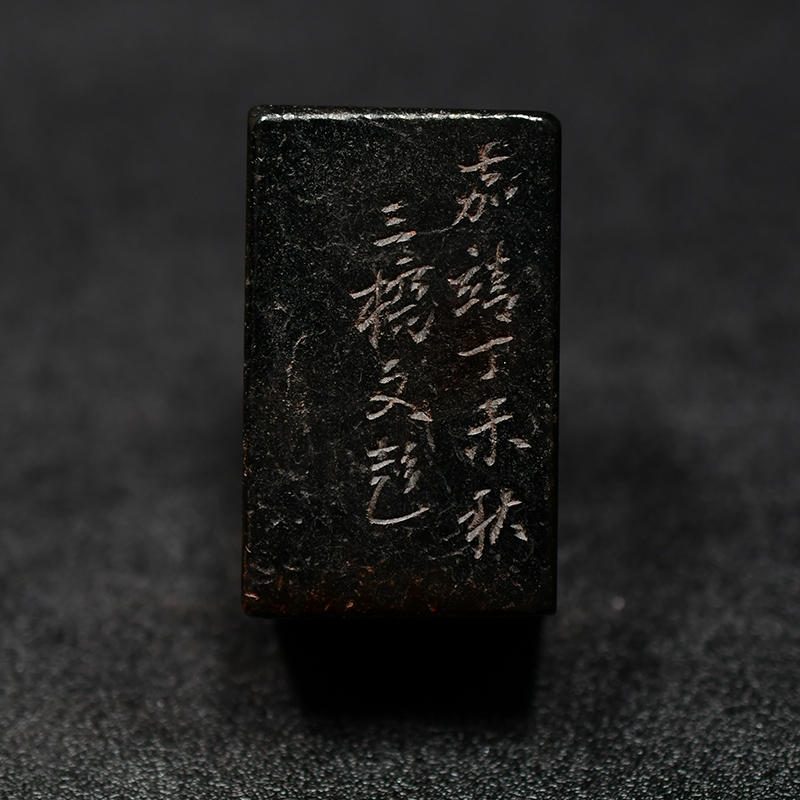 嘉靖丁未秋
三橋文彭